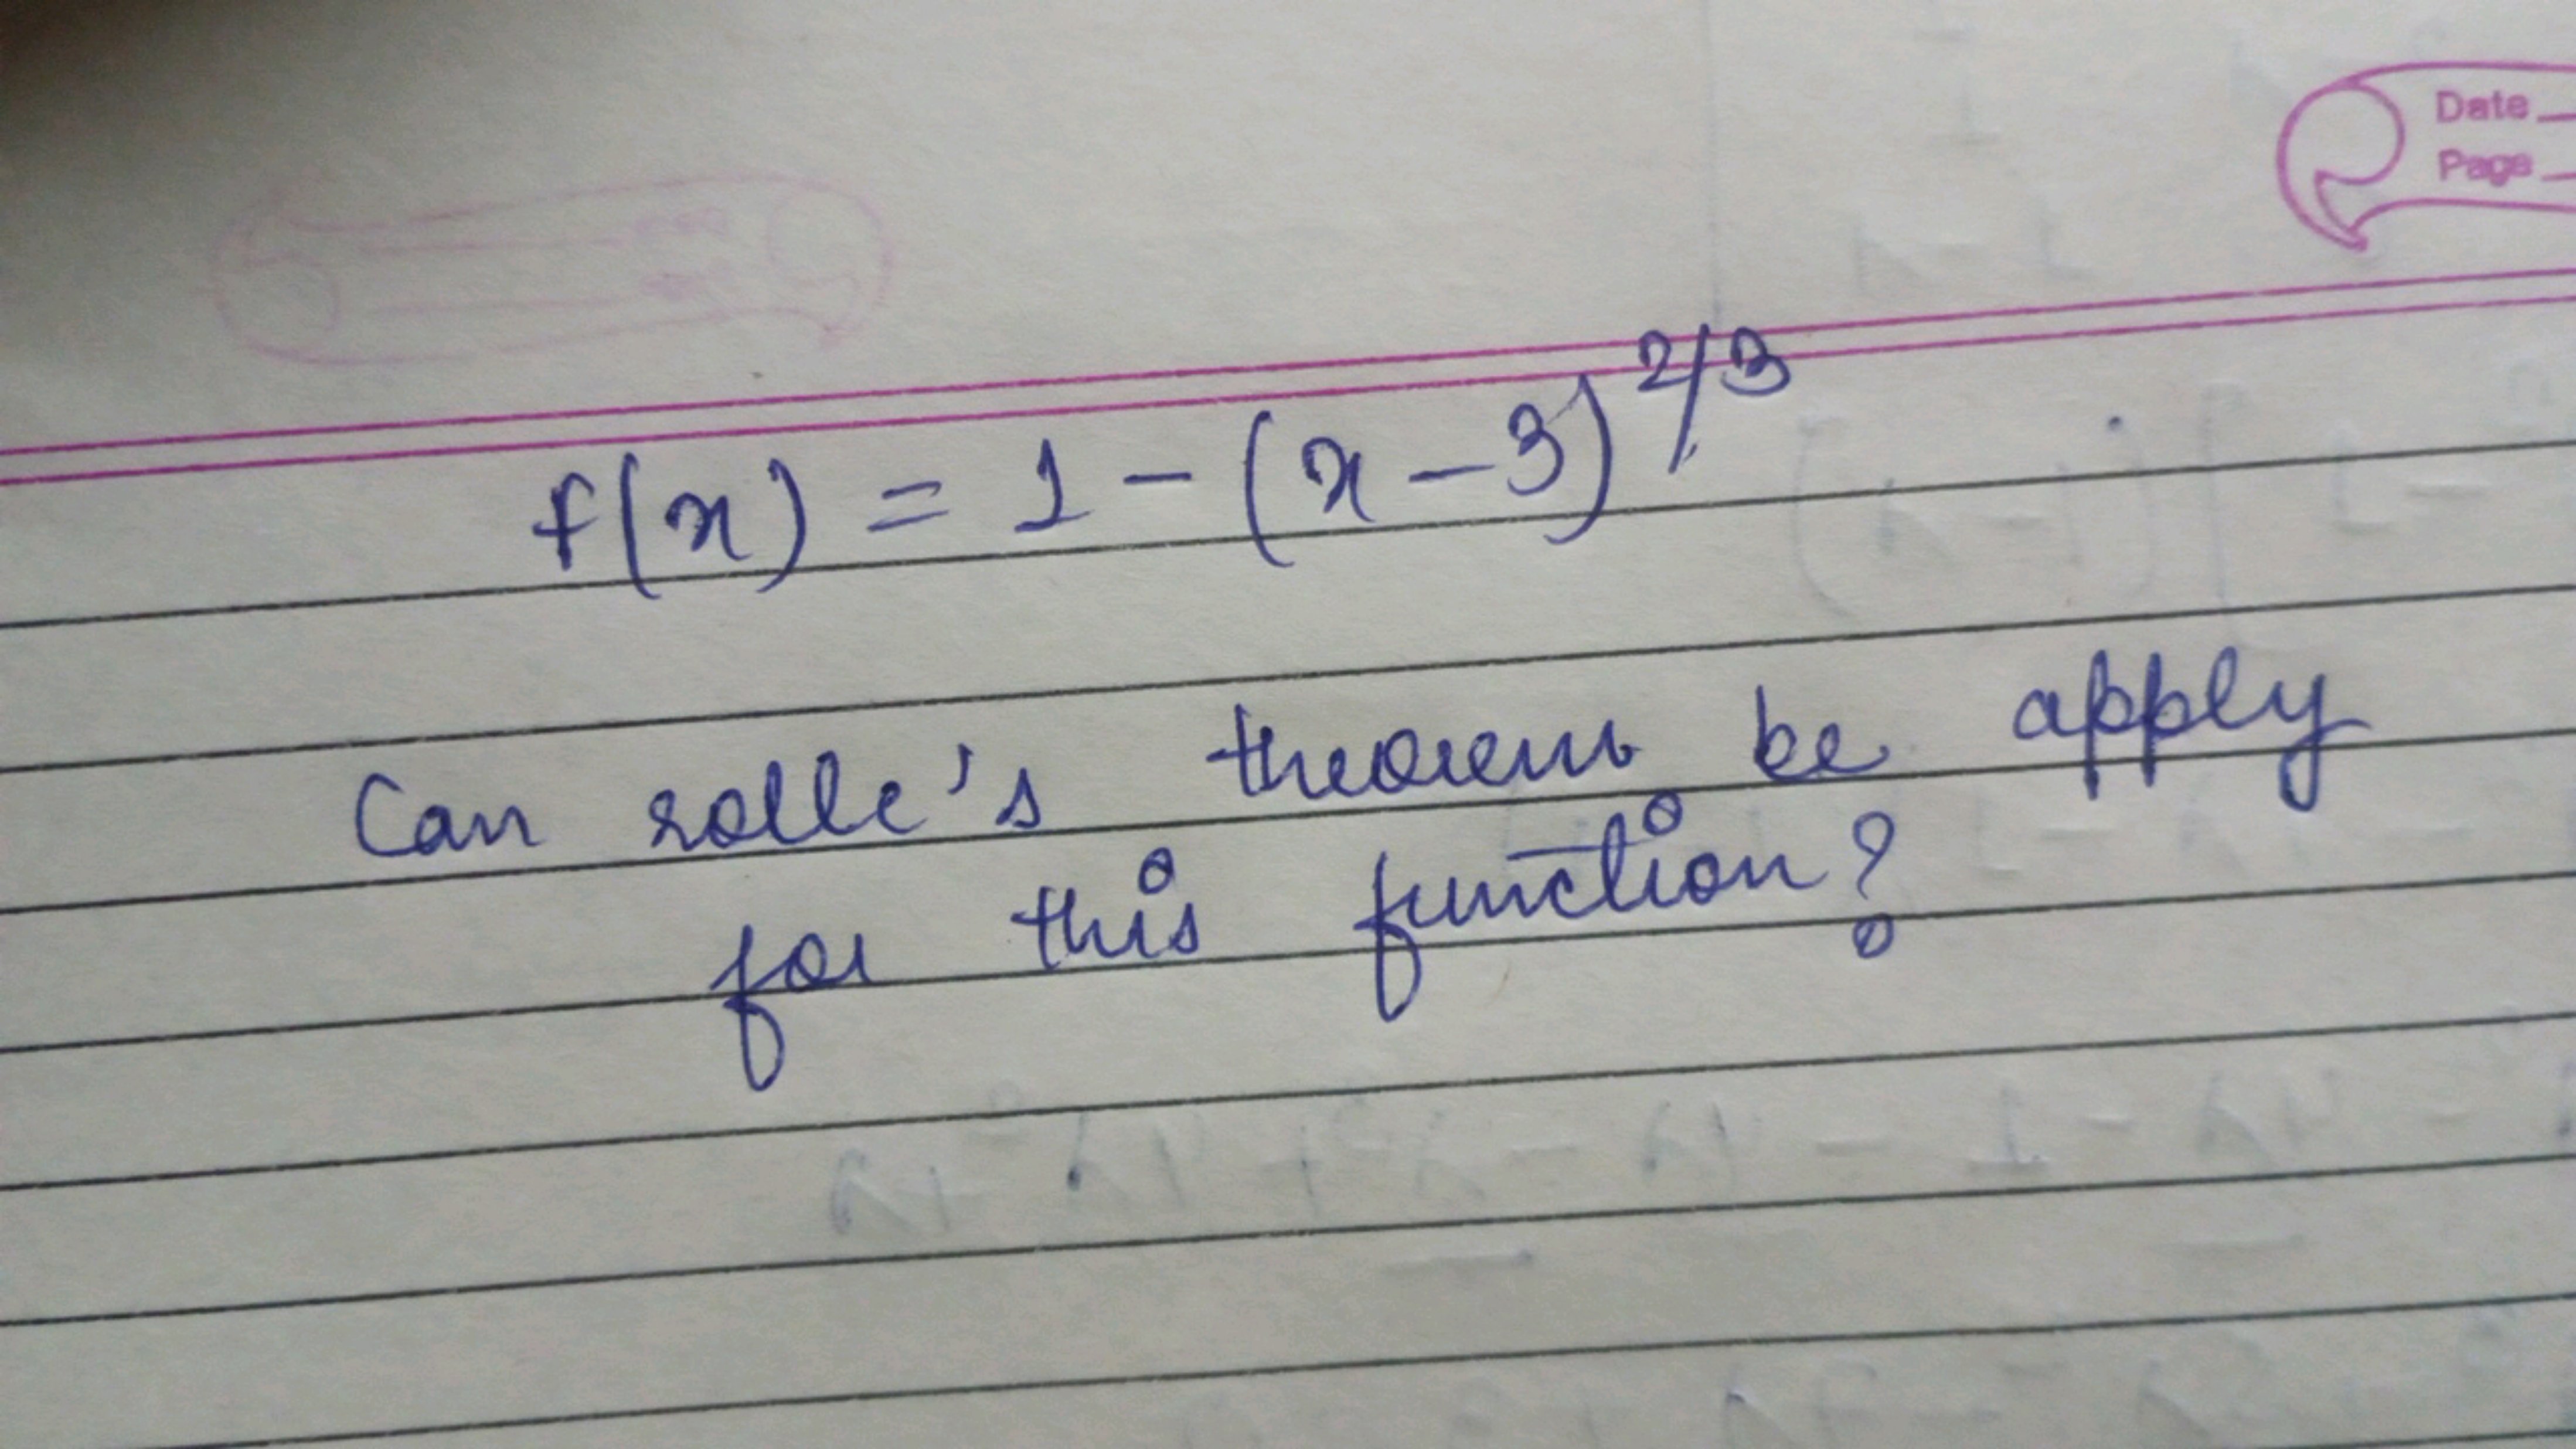 Date
Page
f(x) = 1 - (x - 3)^2/3
Can rolle's theorem be apply
for this function?